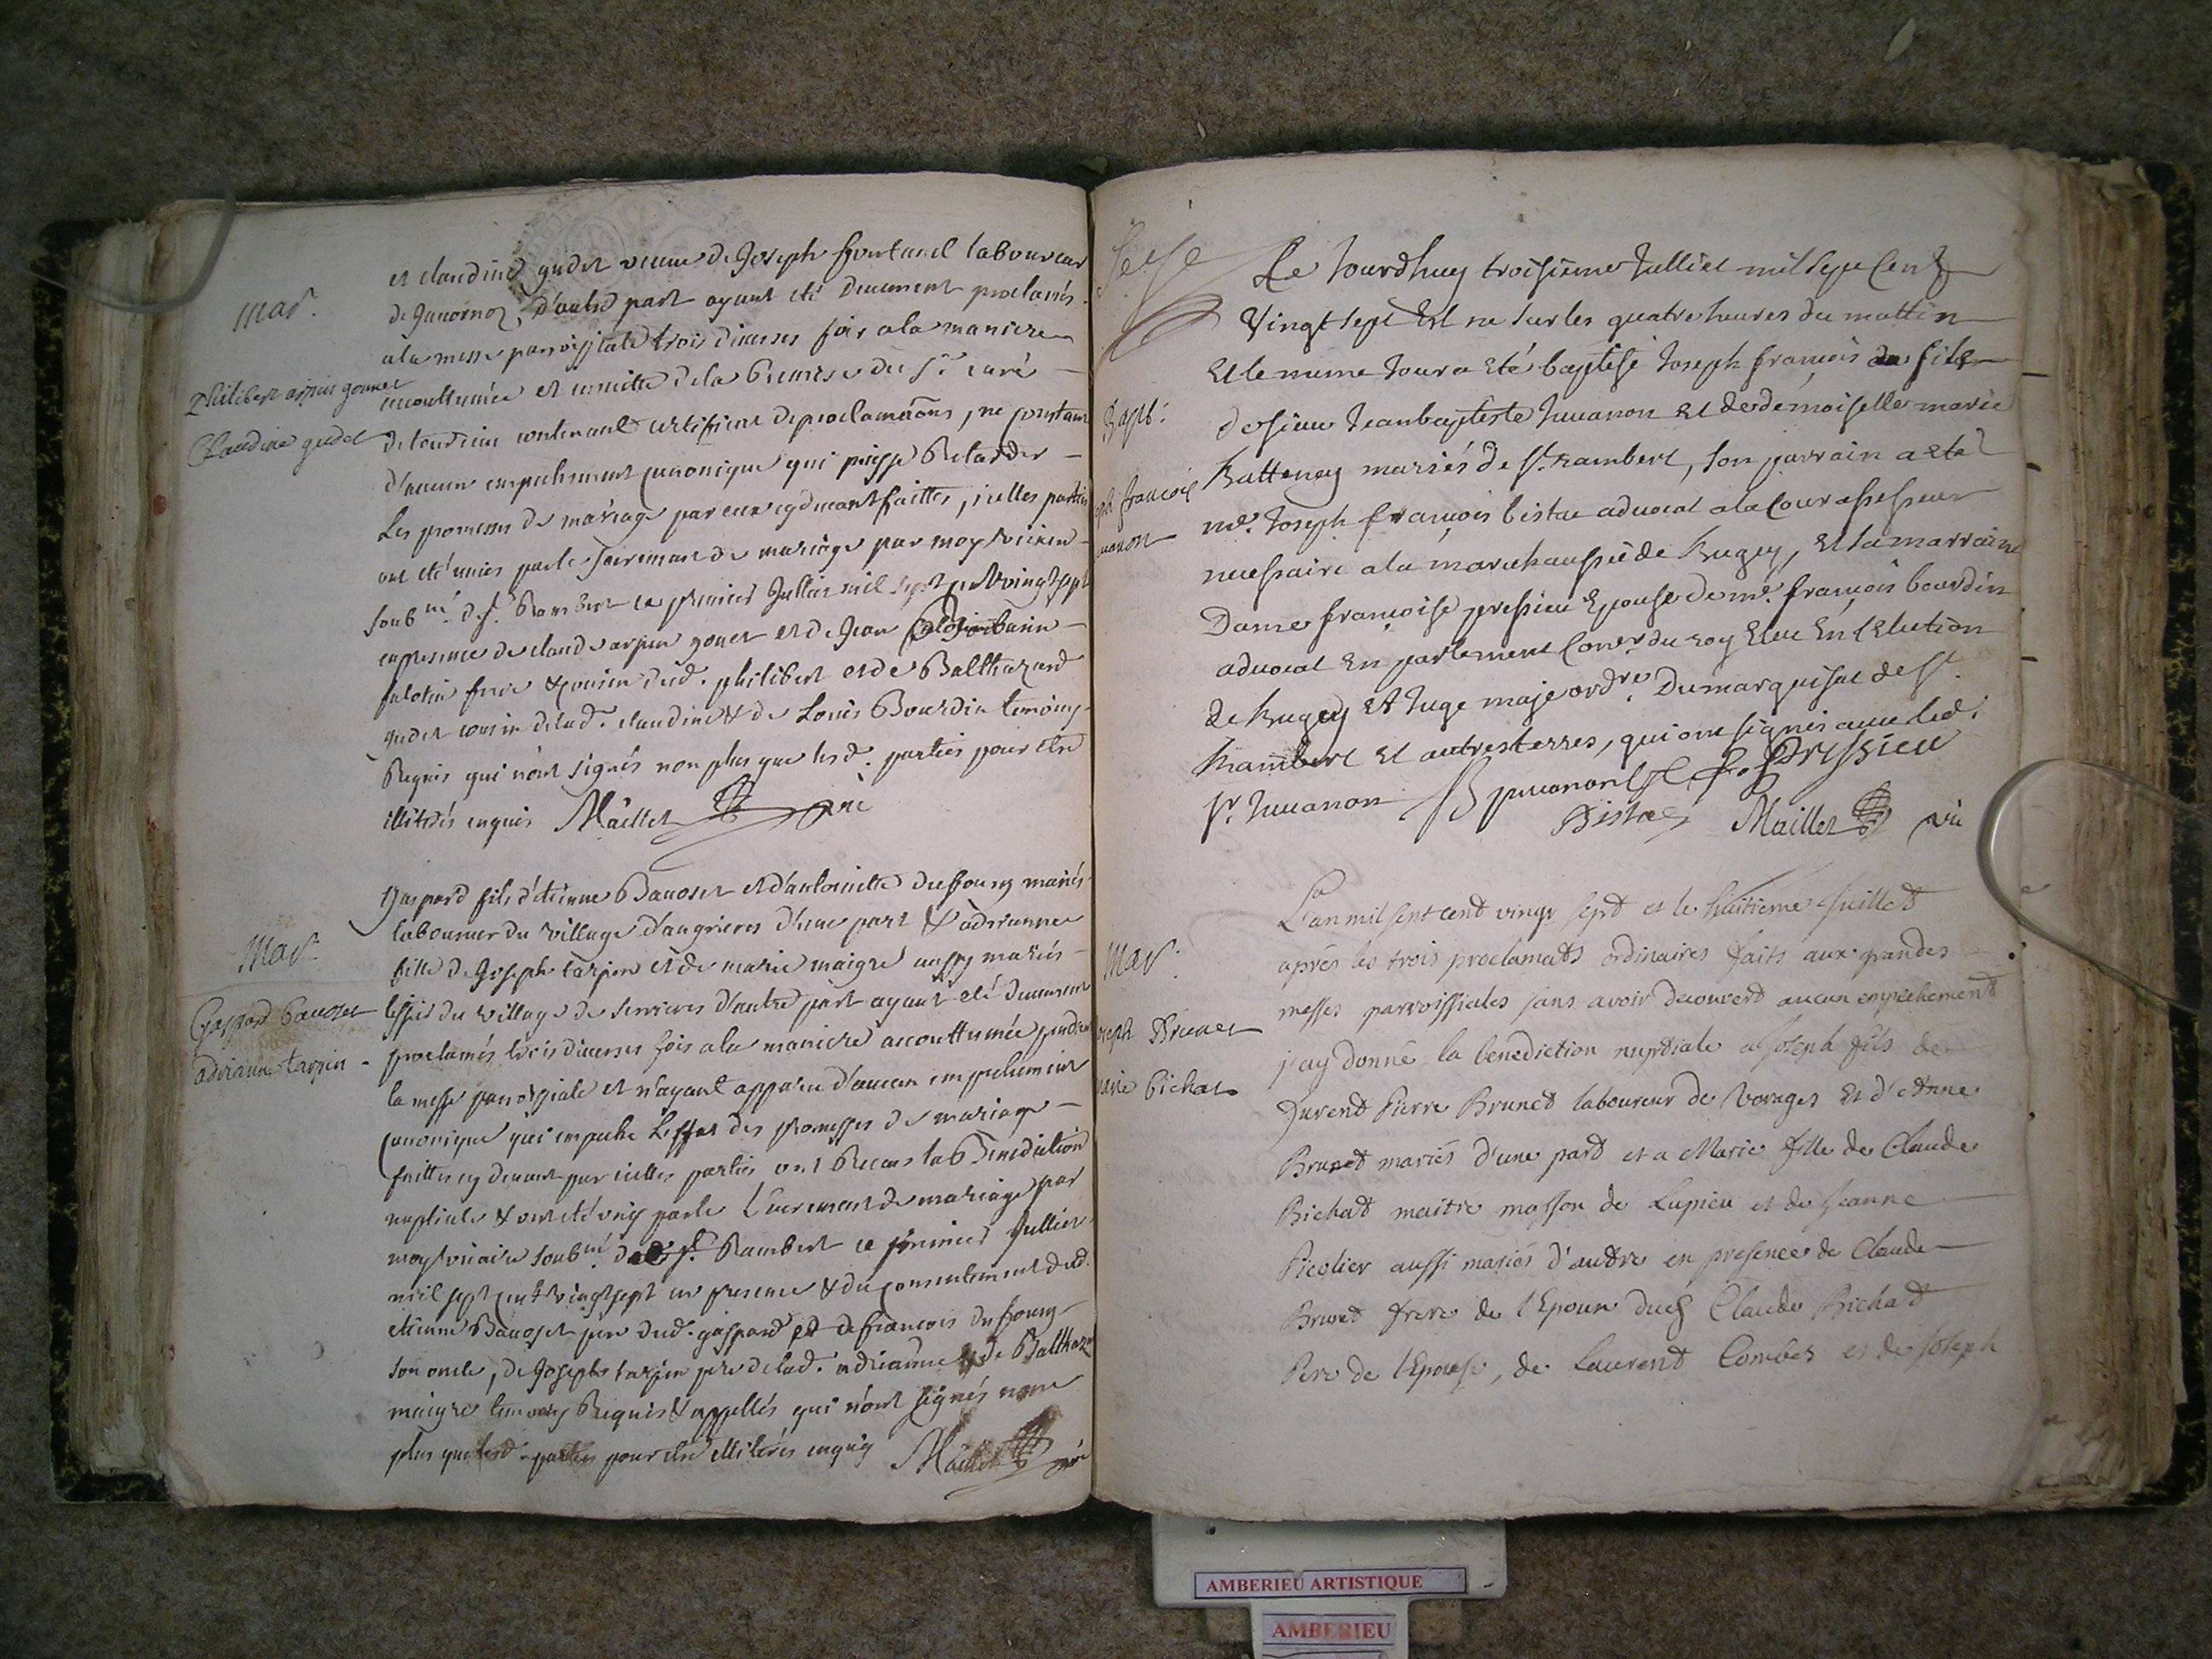 mar.
Philibert arpin gonnet
Claudine gudet
et claudine gudet veuve de Joseph laboureur
d'autre part ayant été duement proclamés
a la messe parroissiale trois diverses fois a la maniere
accouttumée et ensuitte de la du Sr curé
contenant certificat de proclamaõns, ne
d'aucun empechement canonique qui puisse Retarder
Les promesses de mariage par eux cydevant faittes, icelles parties
ont été unies par le sacrement de mariage par moy vicaire
soubné de St Rambert ce premier Jullier mil sept cent vingt sept
en presence de claude arpin gonet et de Jean
falotin frere & cousin dud. philibert et de Balthazard
gudet cousin de lad. claudine & de Louis Bourdin temoins
Requis qui n'ont signés non plus que lesd. parties pour être
illiterés enquis Maillet vic
Mar.
Gaspard bauoset
adrianne tarpin
Gaspard fils d'étienne Bauoset et d'antoinette dufourg mariés
laboureur du village d'angrieres d'une part & adrianne
fille de Joseph tarpin et de marie maigre aussy mariés
du village de serrieres d'autre part ayant été duement
proclamés trois diverses fois a la maniere accouttumée pendant
la messe parroissiale et n'ayant apparu d'aucun empechement
canonique qui empeche Leffet des promesses de mariage
faittes cy devant par icelles parties ont Receus la Benediction
nuptiale & ont été unis par le Sacrement de mariage par
moy vicaire soubné de St Rambert ce premier Jullier
mil sept cent vingt sept en presence & du consentement dud.
étienne Bauoset pere dud. gaspard et de francois dufourg
son oncle, de Joseph tarpin pere de lad. adrianne & de Balthazard
maigre temoins Requis & appellés qui n'ont signés non
plus que lesd. parties pour être illiterés enquis Maillet vic
Bapt.
eph francois
uanon
Le Jourdhuy troisieme Julliet mil sept Cent
Vingt sept Est ne sur les quatre heures du mattin
Et le meme Jour a Eté baptisé Joseph françois fils
de sieur Jean baptiste Juuanon Et de demoiselle marie
Battenay mariés de St Rambert, son parrain a eté
me. Joseph françois bistac advocat a la Cour assesseur
necessaire a la marechaussée de Bugey, Et la marraine
Dame françoise pressieu Epouse de me. françois bourdin
advocat En parlement Conser du roy Eleu En l Election
de Bugey Et Juge maje ordre. Du marquisat de St
Rambert Et autres terres, qui ont signés avec led.
Sr. Juuanon Juuanon f. Pressieu
Bistac Maillet vic
Mar.
oseph Brunet
arie bichat
L'an mil sept cent vingt sept et le huitieme Juillet
après les trois proclamats ordinaires faits aux grandes
messes parroissiales sans avoir decouvert aucun empechement
j'ay donné la benediction nuptiale a Joseph fils de
Jurent Pierre Brunet laboureur de Vorages Et d'Anne
Brunet mariés d'une part et a Marie fille de Claude
Bichat maitre masson de Lupieu et de Jeanne
Picolier aussi mariés d'autre en presence de Claude
Brunet frere de l'Epoux dud Claude Bichat
Pere de l'Epouse, de Laurent Combet et de Joseph
AMBERIEU ARTISTIQUE
AMBERIEU